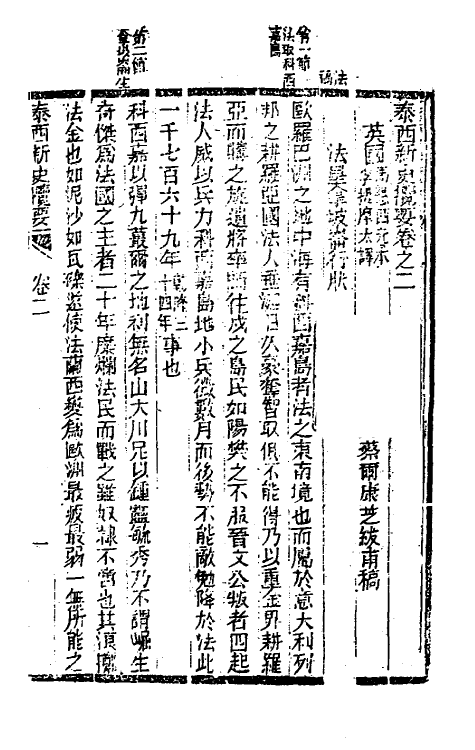 泰西新史攬要卷之二
英國馬懇西元本
李提摩太譯
蔡爾康芝紱甫稿
法皇拿坡崙行狀
法國
第一節
法取科西
嘉島
歐羅巴洲之地中海有科西嘉島者法之東南境也而屬於意大利列
邦之耕羅亞國法人垂涎已久豪奪智取俱不能得乃以重金畀耕羅
亞而購之旋遣將率師往戍之島民如陽樊之不服晉文公叛者四起
法人威以兵力科西嘉島地小兵微數月而後勢不能敵勉降於法此
一千七百六十九年乾隆三十四年事也
第二節
拿坡崙生
科西嘉以彈丸蕞爾之地初無名山大川足以鍾靈毓秀乃不謂崛生
奇傑為法國之主者二十年糜爛法民而戰之雖奴隸不啻也其浪擲
法金也如泥沙如瓦礫遂使法蘭西變為歐洲最疲最弱一無所能之
泰西新史攬要 卷二 一